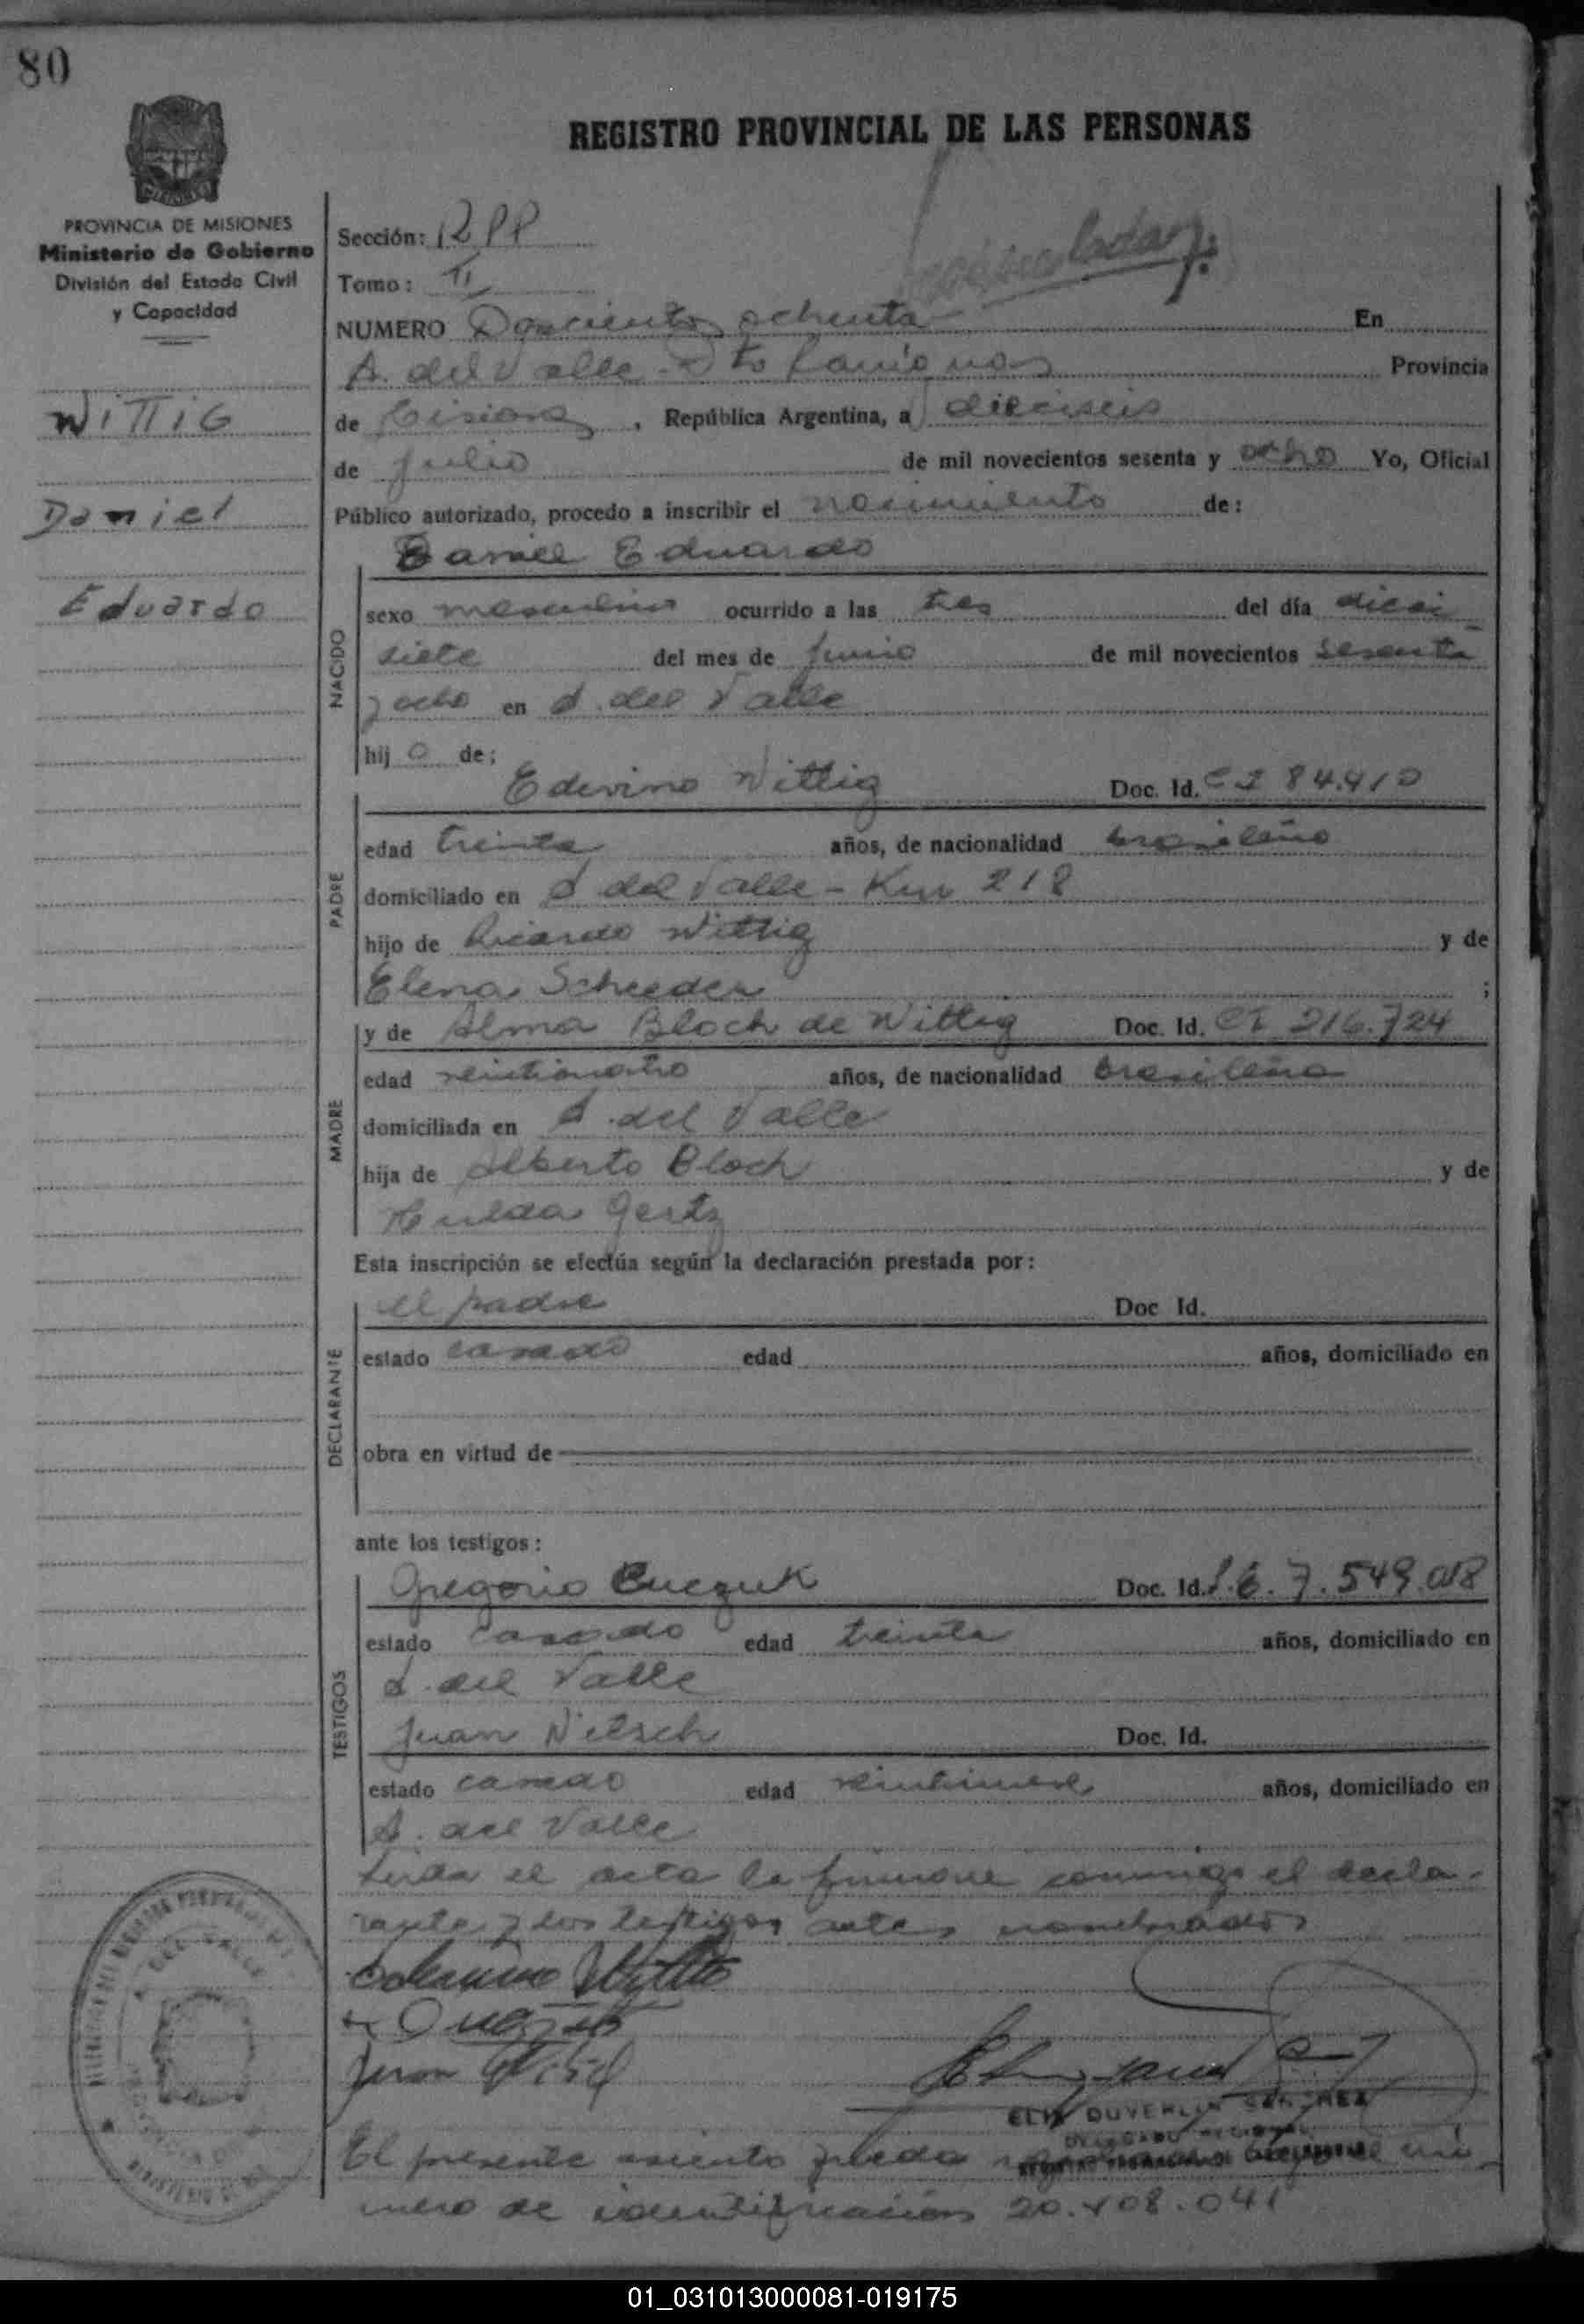 80
REGISTRO PROVINCIAL DE LAS PERSONAS
PROVINCIA DE MISIONES
Ministerio de Gobierno
División del Estado Civil
y Capacidad
WITTIG
Daniel
Eduardo
Sección: RPP
Tomo: II
NUMERO Doscientos ochenta En
A. del Valle - Dto Cainguas Provincia
de Misiones, República Argentina, a dieciseis
de julio de mil novecientos sesenta y ocho Yo, Oficial
Público autorizado, procedo a inscribir el nacimiento de:
Daniel Eduardo
NACIDO
sexo masculino ocurrido a las tres del día dieci
siete del mes de junio de mil novecientos sesenta
y ocho en A. del Valle
hijo de;
Edevino Wittig Doc. Id. CI 84.410
PADRE
edad treinta años, de nacionalidad brasileño
domiciliado en A del Valle - Km 218
hijo de Ricardo Wittig y de
Elena Scheeder ;
y de Alma Bloch de Wittig Doc. Id. CI 216.724
MADRE
edad veinticuatro años, de nacionalidad brasileña
domiciliada en A. del Valle
hija de Alberto Bloch y de
Hulda Gertz
Esta inscripción se efectúa según la declaración prestada por:
el padre Doc Id.
DECLARANTE
estado casado edad años, domiciliado en
obra en virtud de
ante los testigos:
Gregorio Cuczuk Doc. Id. 7.549.018
TESTIGOS
estado casado edad treinta años, domiciliado en
A. del Valle
Juan Nitsch Doc. Id.
estado casado edad veintinueve años, domiciliado en
A. del Valle
Leida el acta la firman conmigo el decla-
rante y los testigos antes nombrados
DELEGADO
El presente asiento queda bajo el nú-
mero de identificación 20.408.041
01_031013000081-019175